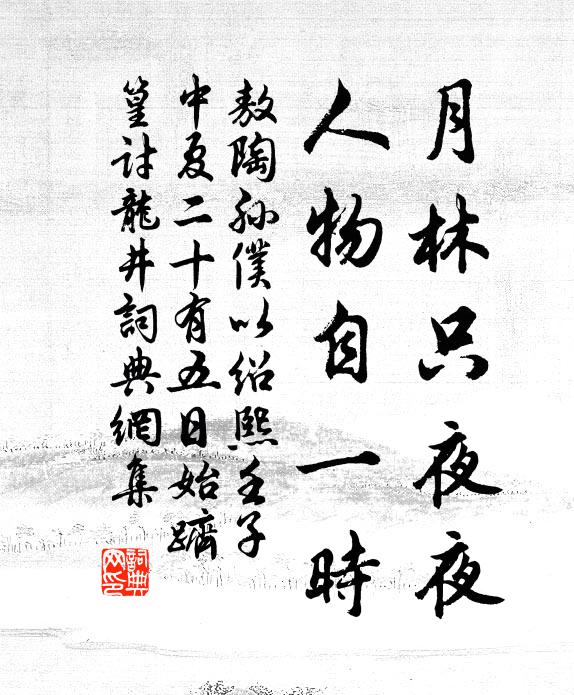 月林只夜夜
人物自一時
敖陶孫僕以紹熙壬子
中夏二十有五日始躋
篁討龍井詞典網集
詞典
网印